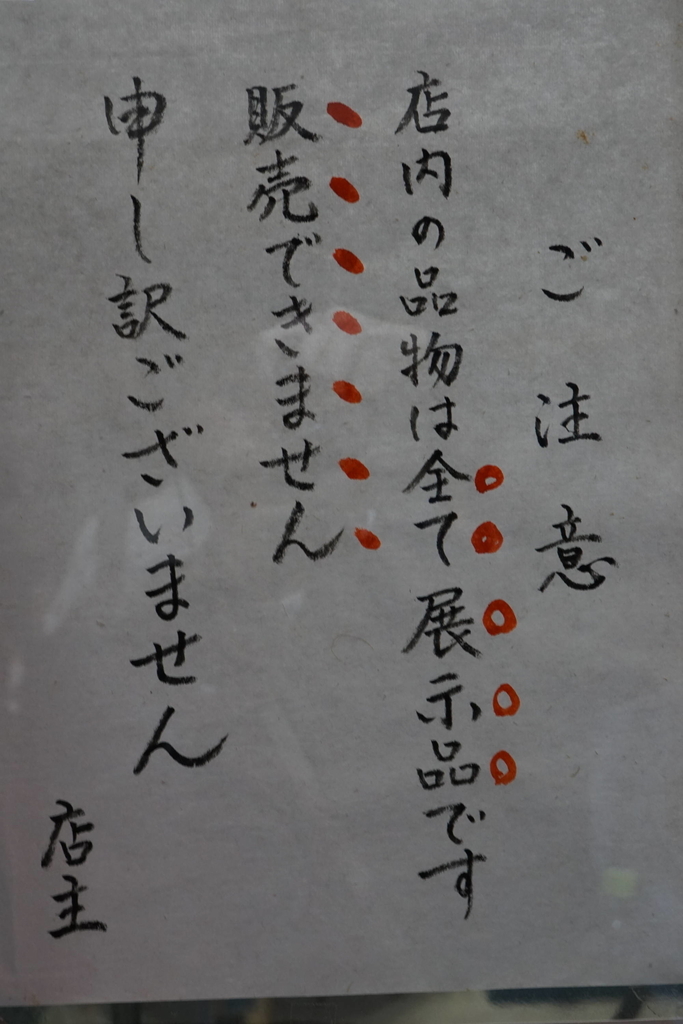 ご注意
店内の品物は全て展示品です
販売できません
申し訳ございません
店主